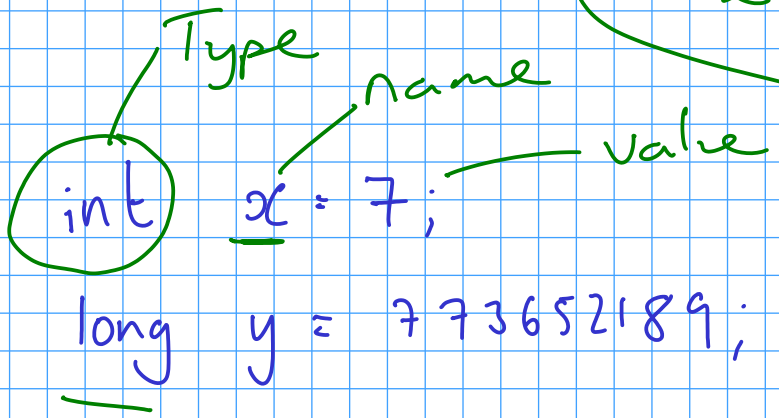 Type
name
value
int x = 7;
long y = 773652189;